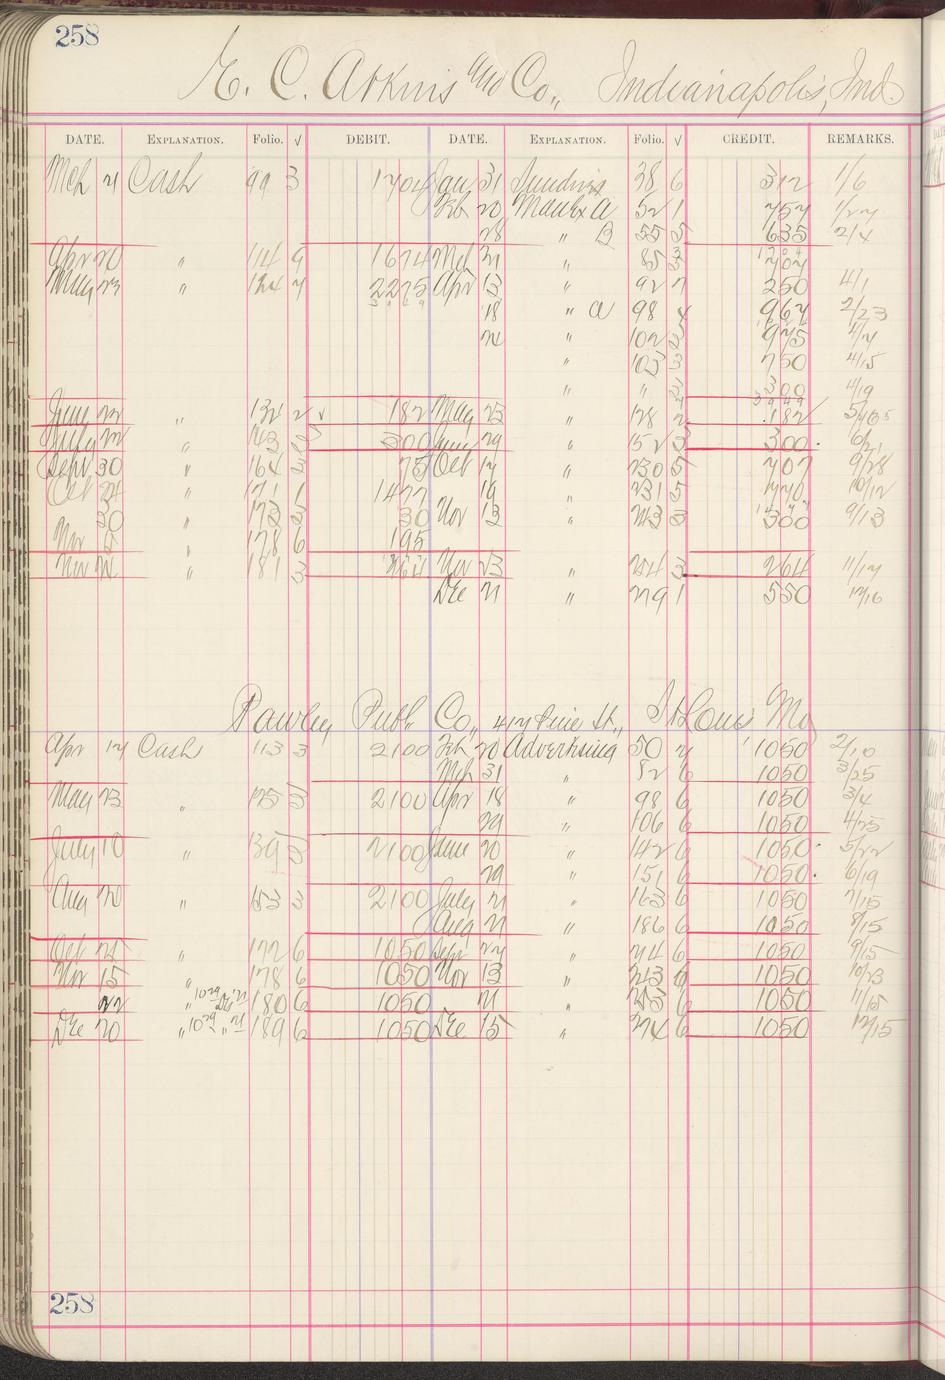 258
E. C. Atkins and Co., Indianapolis, Ind.
DATE. EXPLANATION. Folio. √ DEBIT. DATE. EXPLANATION. Folio. √ CREDIT. REMARKS.
Mch 21 Cash 99 3 1704 Jan 31 Sundries 38 6 312 1/6
Feb 20 Manfx A 52 1 757 1/27
28 " B 55 5 635 2/4
Apr 20 " 114 9 1674 Mch 21 " 85 704
May 23 " 124 7 2275 Apr 13 " 92 7 250 4/1
18 " A 98 4 967 2/23
24 " 102 975
" 103 3 750 4/15
" " 300 4/19
June 22 " 132 2 √ 182 May 23 " 128 2 182
July 22 " 300 June 29 " 152 300
Sept 30 " 164 75 Oct 17 " 230 5 707 9/28
Oct 24 " 171 1 1477 19 " 231 5 770 10/12
30 " 173 30 Nov 13 " 243 300 9/13
Nov " 178 6 195
Nov 24 " 181 3 264 Nov 23 " 254 3 264 11/17
Dec 21 " 279 1 550 12/16
Pawley Publ. Co., 417 Pine St., St Louis Mo
Apr 17 Cash 113 3 2100 Feb 20 Advertising 50 1050 2/10
Mch 31 " 82 6 1050 3/25
May 23 " 125 2100 Apr 18 " 98 6 1050 3/4
29 " 106 6 1050 4/25
July 10 " 139 2100 June 20 " 142 6 1050 5/22
29 " 151 6 1050 6/19
Aug 20 " 153 3 2100 July 21 " 163 6 1050 7/15
Aug 21 " 186 6 1050 8/15
Oct 24 " 172 6 1050 Sept 27 " 214 6 1050 9/15
Nov 15 " 178 6 1050 Nov 13 " 243 6 1050 10/23
22 " 180 6 1050 21 " 6 1050 11/15
Dec 20 " 189 6 1050 Dec 15 " 274 6 1050 12/15
258